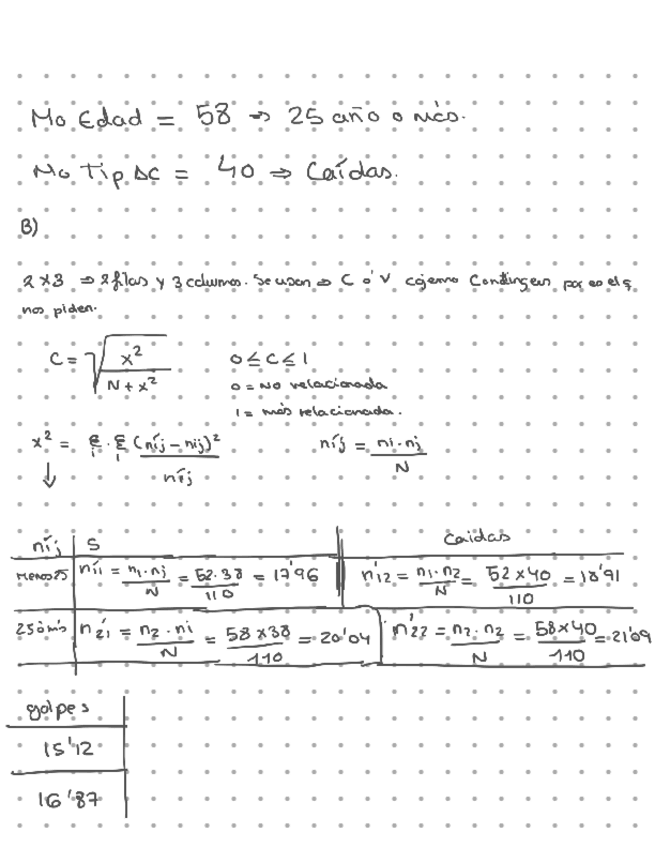 Mo Edad = 58 ⇒ 25 año o más.
Mo Tip AC = 40 ⇒ Caídas.
B)
2x3 ⇒ 2 filas y 3 columnas. Se usan ⇒ C o V cojemo Contingen por es el q
nos piden.
C = √(x² / (N + x²)) 0 ≤ C ≤ 1
0 = No relacionada
1 = más relacionada.
x² = Σi · Σj (níj − nij)² / níj níj = ni · nj / N
↓
níj S Caidas
menos25 n'11 = n1·nj / N = 52·38 / 110 = 17'96 n'12 = n1·n2 / N = 52 x 40 / 110 = 18'91
25 ó más n'21 = n2·ni / N = 58 x 38 / 110 = 20'04 n'22 = n2·n2 / N = 58 x 40 / 110 = 21'09
golpes
15'12
16'87